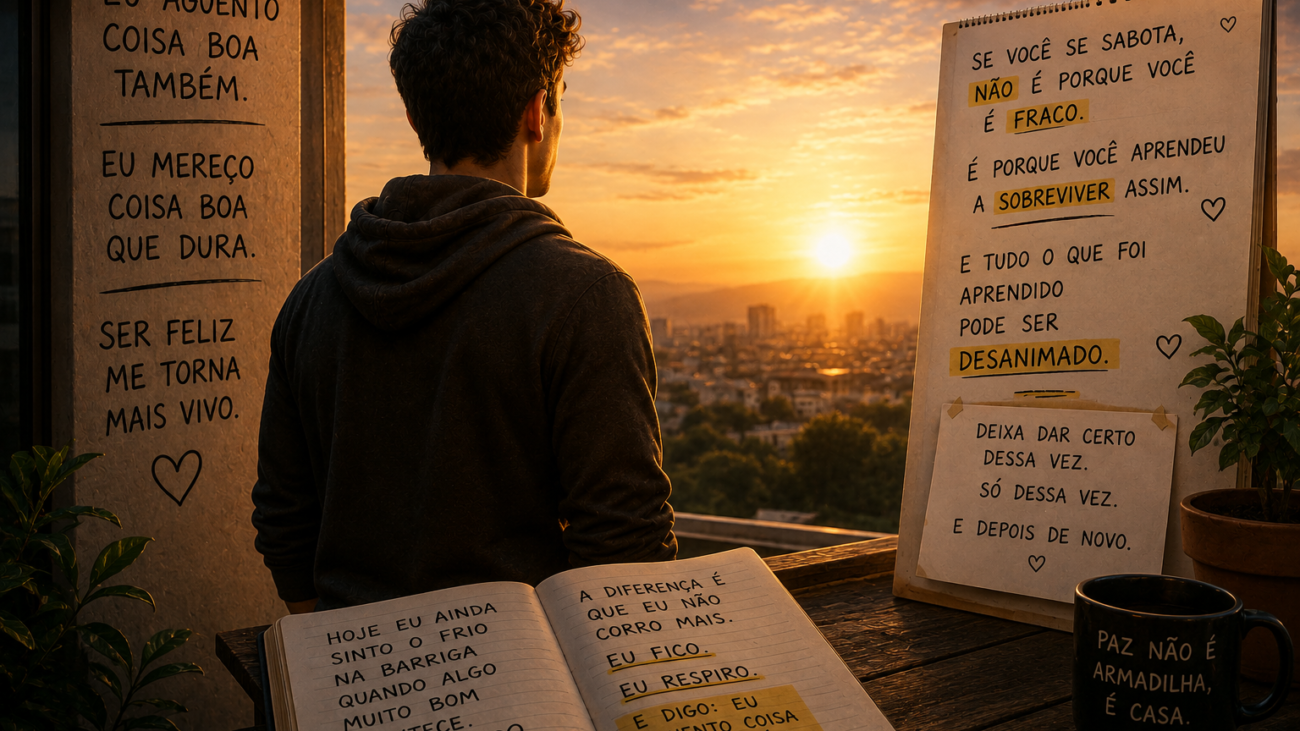 EU AGUENTO
COISA BOA
TAMBÉM.
EU MEREÇO
COISA BOA
QUE DURA.
SER FELIZ
ME TORNA
MAIS VIVO.
HOJE EU AINDA
SINTO O FRIO
NA BARRIGA
QUANDO ALGO
MUITO BOM
A DIFERENÇA É
QUE EU NÃO
CORRO MAIS.
EU FICO.
EU RESPIRO.
E DIGO: EU
COISA
SE VOCÊ SE SABOTA,
NÃO É PORQUE VOCÊ
É FRACO.
É PORQUE VOCÊ APRENDEU
A SOBREVIVER ASSIM.
E TUDO O QUE FOI
APRENDIDO
PODE SER
DESANIMADO.
DEIXA DAR CERTO
DESSA VEZ.
SÓ DESSA VEZ.
E DEPOIS DE NOVO.
PAZ NÃO É
ARMADILHA,
É CASA.